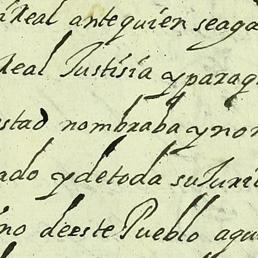 Real ante quien seaga
Real Justisia y paraq
estad nombraba y nom
ado y de toda su Juri
no de este Pueblo aqu